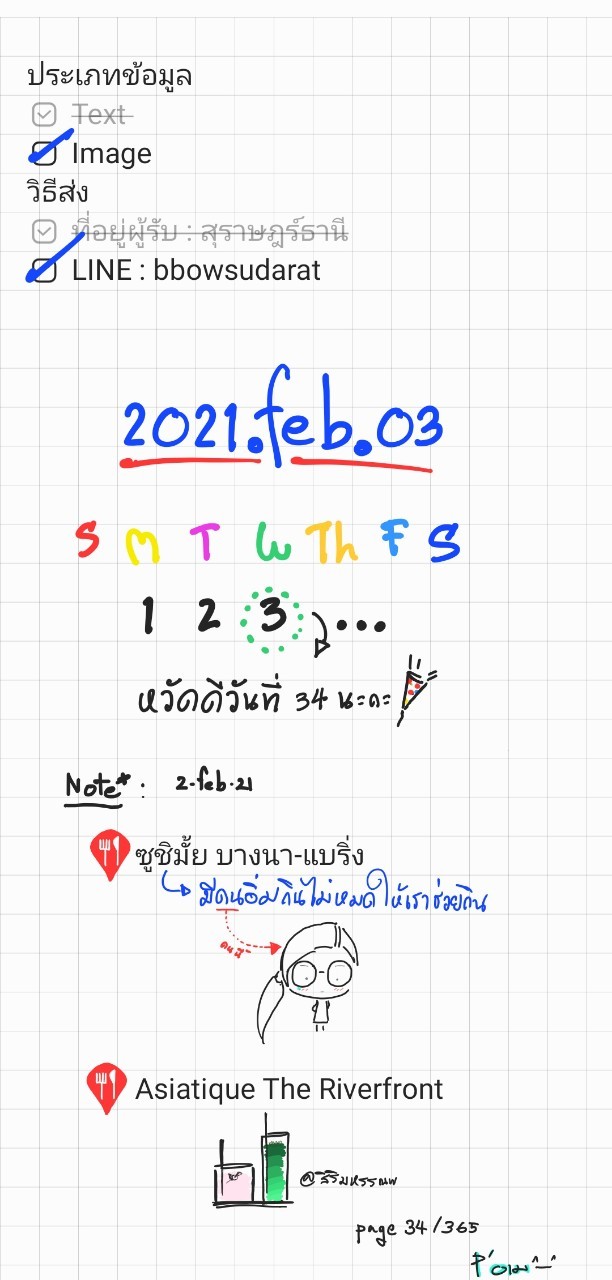 ประเภทข้อมูล
Text
Image
วิธีส่ง
ที่อยู่ผู้รับ : สุราษฎร์ธานี
LINE : bbowsudarat
2021.feb.03
S M T W Th F S
1 2 3 ...
หวัดดีวันที่ 34 นะคะ
Note* : 2.feb.21
ซูชิมั้ย บางนา-แบริ่ง
มีคนอิ่มกินไม่หมดให้เราช่วยกิน
คนนี้
Asiatique The Riverfront
@สิริมหรรณพ
page 34/365